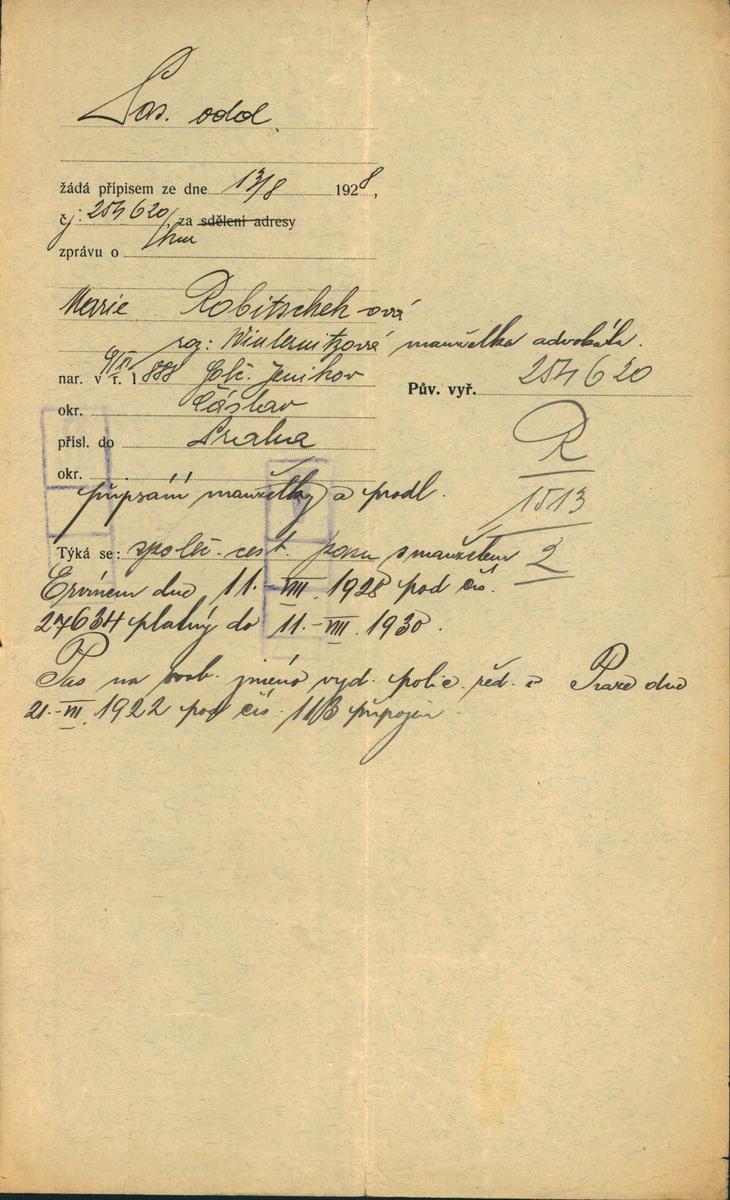 Pas. odd.
žádá přípisem ze dne 13/8 1928,
čj: 254620/ za sdělení adresy
zprávu o
Marie Robitschek-ová
roz: Winternitzová manželka advokáta.
nar. v r. 1888 9/XI Golč. Jeníkov
Pův. vyř. 254620
okr. Čáslav
přísl. do Praha
R
okr.
1513
připsání manželky a prodl.
2
Týká se: společ. cest. pasu s manželem
Ervínem dne 11.-VIII. 1928 pod čís.
27634 platný do 11.-VIII. 1930.
Pas na jméno vyd. polic. řed. v Praze dne
21.-III. 1922 pod čís. 1113 připojen.